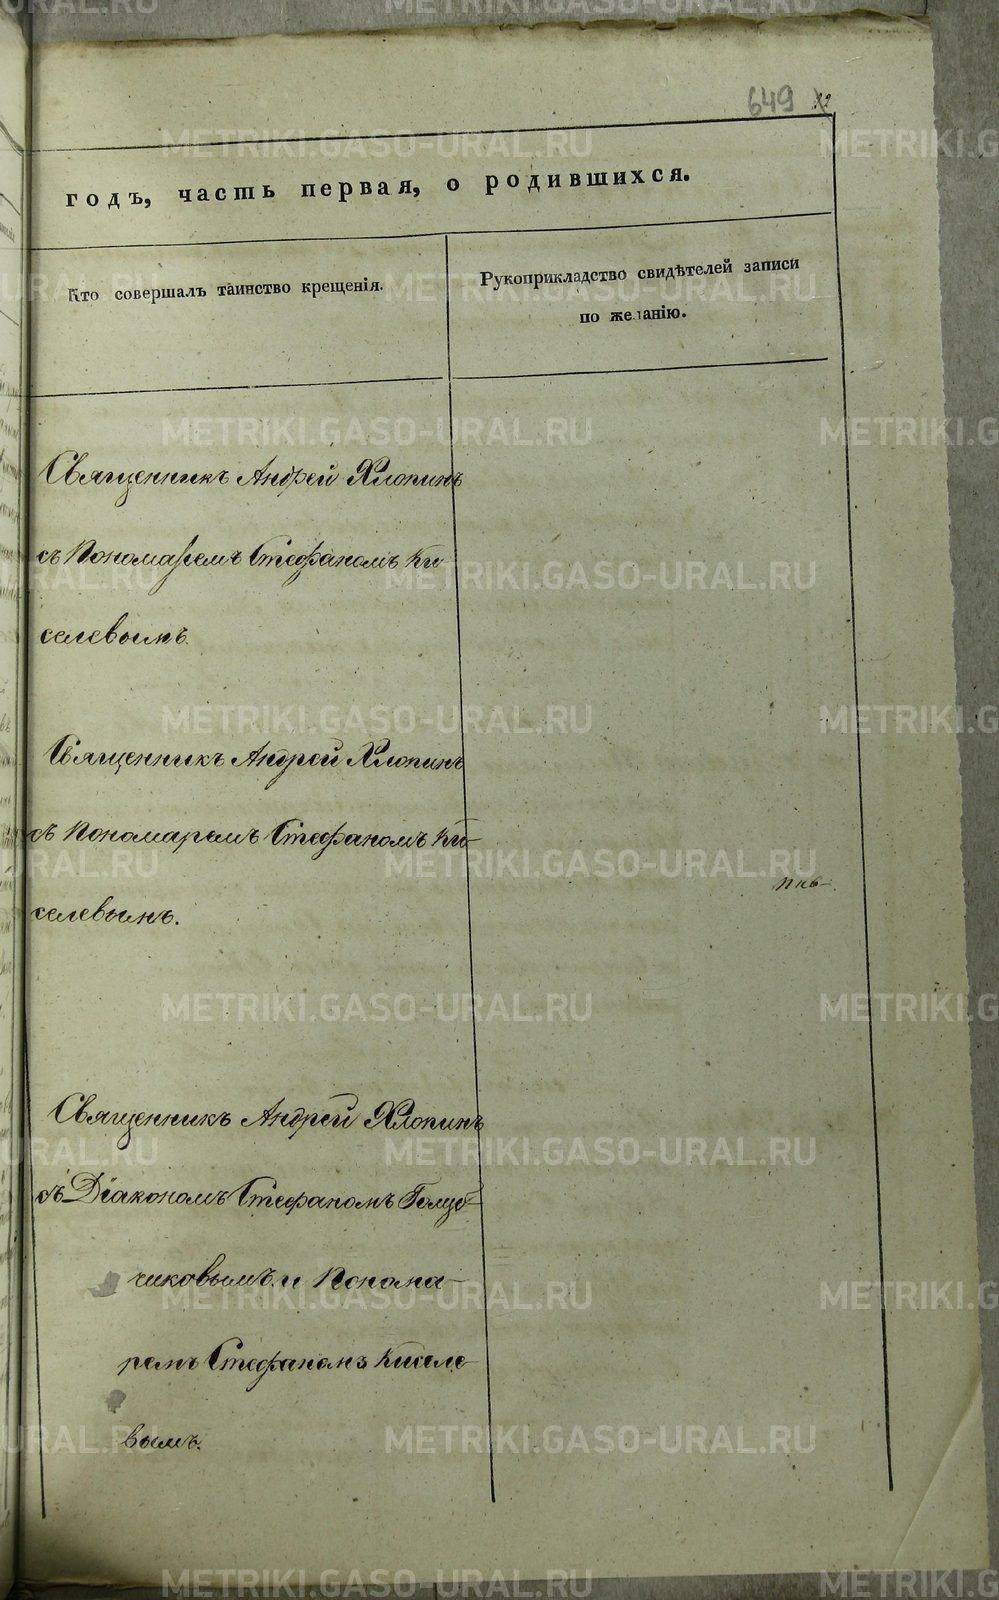 649
годъ, часть первая, о родившихся.
Кто совершалъ таинство крещенія.
Рукоприкладство свидѣтелей записи
по желанію.
Священникъ Андрей Хлопинъ
съ Пономаремъ Стефаномъ Ки-
селевымъ.
Священникъ Андрей Хлопинъ
съ Пономаремъ Стефаномъ Ки-
селевымъ.
Священникъ Андрей Хлопинъ
съ Діакономъ Стефаномъ
чиковымъ и Понома-
ремъ Стефаномъ Киселе-
вымъ.
METRIKI.GASO-URAL.RU